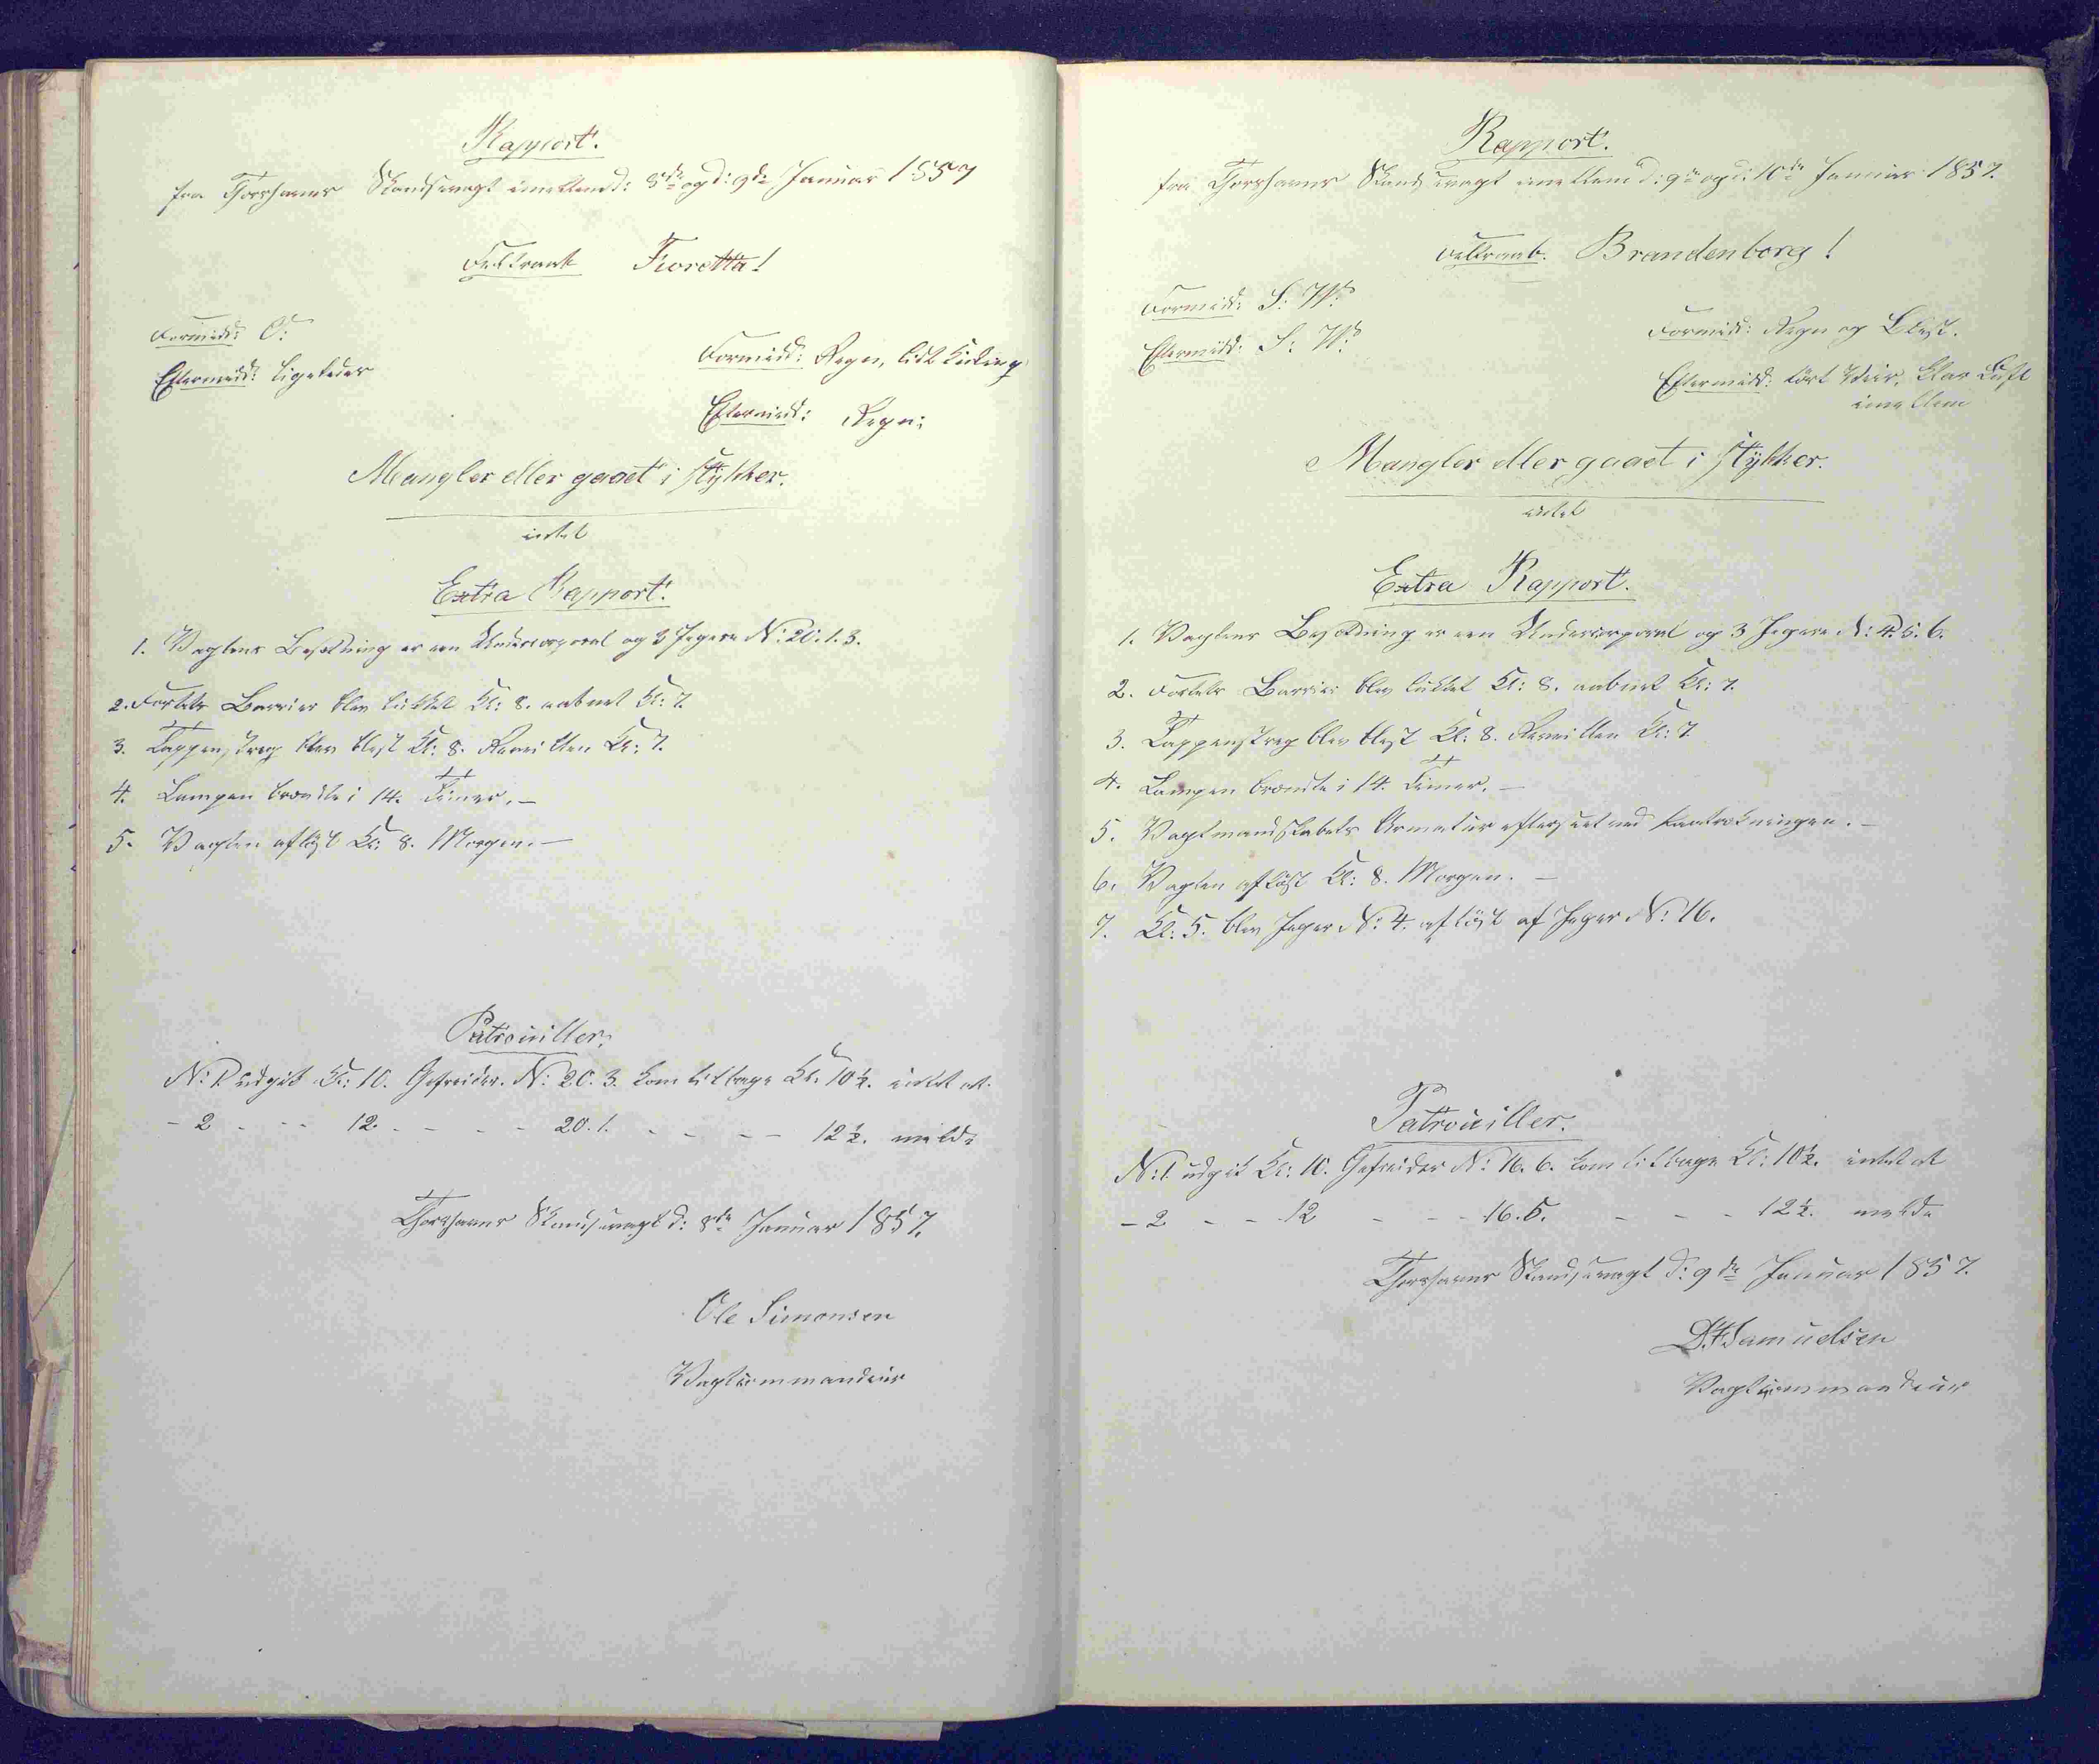 Rapport.
fra Thorshavns Skandsevagt imellem d: 8de og d: 9de Januar 1857
Feltraab Fioretta!
Formidd: O:
Eftermidd: ligeledes
Formidd: Regn, lidt Kuling
Eftermidd: Regn;
Mangler eller gaaet i stykker.
intet
Extra Rapport.
1. Vagtens Besætning er een Undercorporal og 3 Jegere N: 20. 1. 3.
2. Fortets Barrier blev lukket Kl: 8. aabnet Kl: 7.
3. Tappenstreg blev blæst Kl: 8. Reveillen Kl: 7.
4. Lampen brændte i 14. Timer. –
5. Vagten afløst Kl: 8. Morgen. –
Patrouiller.
N: 1 udgik Kl: 10. Gefreider. N: 20. 3. kom tilbage Kl: 10½. intet at
- 2 - - - 12. - - - - 20. 1. - - - - 12½. melde
Thorshavns Skandsevagt d: 8de Januar 1857.
Ole Simonsen
Vagtcommandeur
Rapport.
fra Thorshavns Skandsevagt imellem d: 9de og d: 10de Januar 1857.
Feltraab. Brandenborg!
Formidd: S: V:
Eftermidd: S: V:
Formidd: Regn og Blæst.
Eftermidd: tört Veir, klar Luft
imellem
Mangler eller gaaet i stykker.
intet
Extra Rapport.
1. Vagtens Besætning er een Undercorporal og 3 Jegere N: 4. 5. 6.
2. Fortets Barrier blev lukket Kl: 8. aabnet Kl: 7.
3. Tappenstreg blev blæst Kl: 8. Reveillen Kl: 7.
4. Lampen brændte i 14. Timer. –
5. Vagtmandskabets Armatur efterseet ved Paatrækningen. –
6. Vagten afløst Kl: 8. Morgen. –
7. Kl: 5. blev Jeger N: 4. afløst af Jeger N: 16.
Patrouiller.
N: 1 udgik Kl: 10. Gefreider N: 16. 6. kom tilbage Kl: 10½. intet at
- 2 - - 12 - - - 16. 5. - - - 12½. melde
Thorshavns Skandsevagt d: 9de Januar 1857.
Samuelsen
Vagtcommandeur